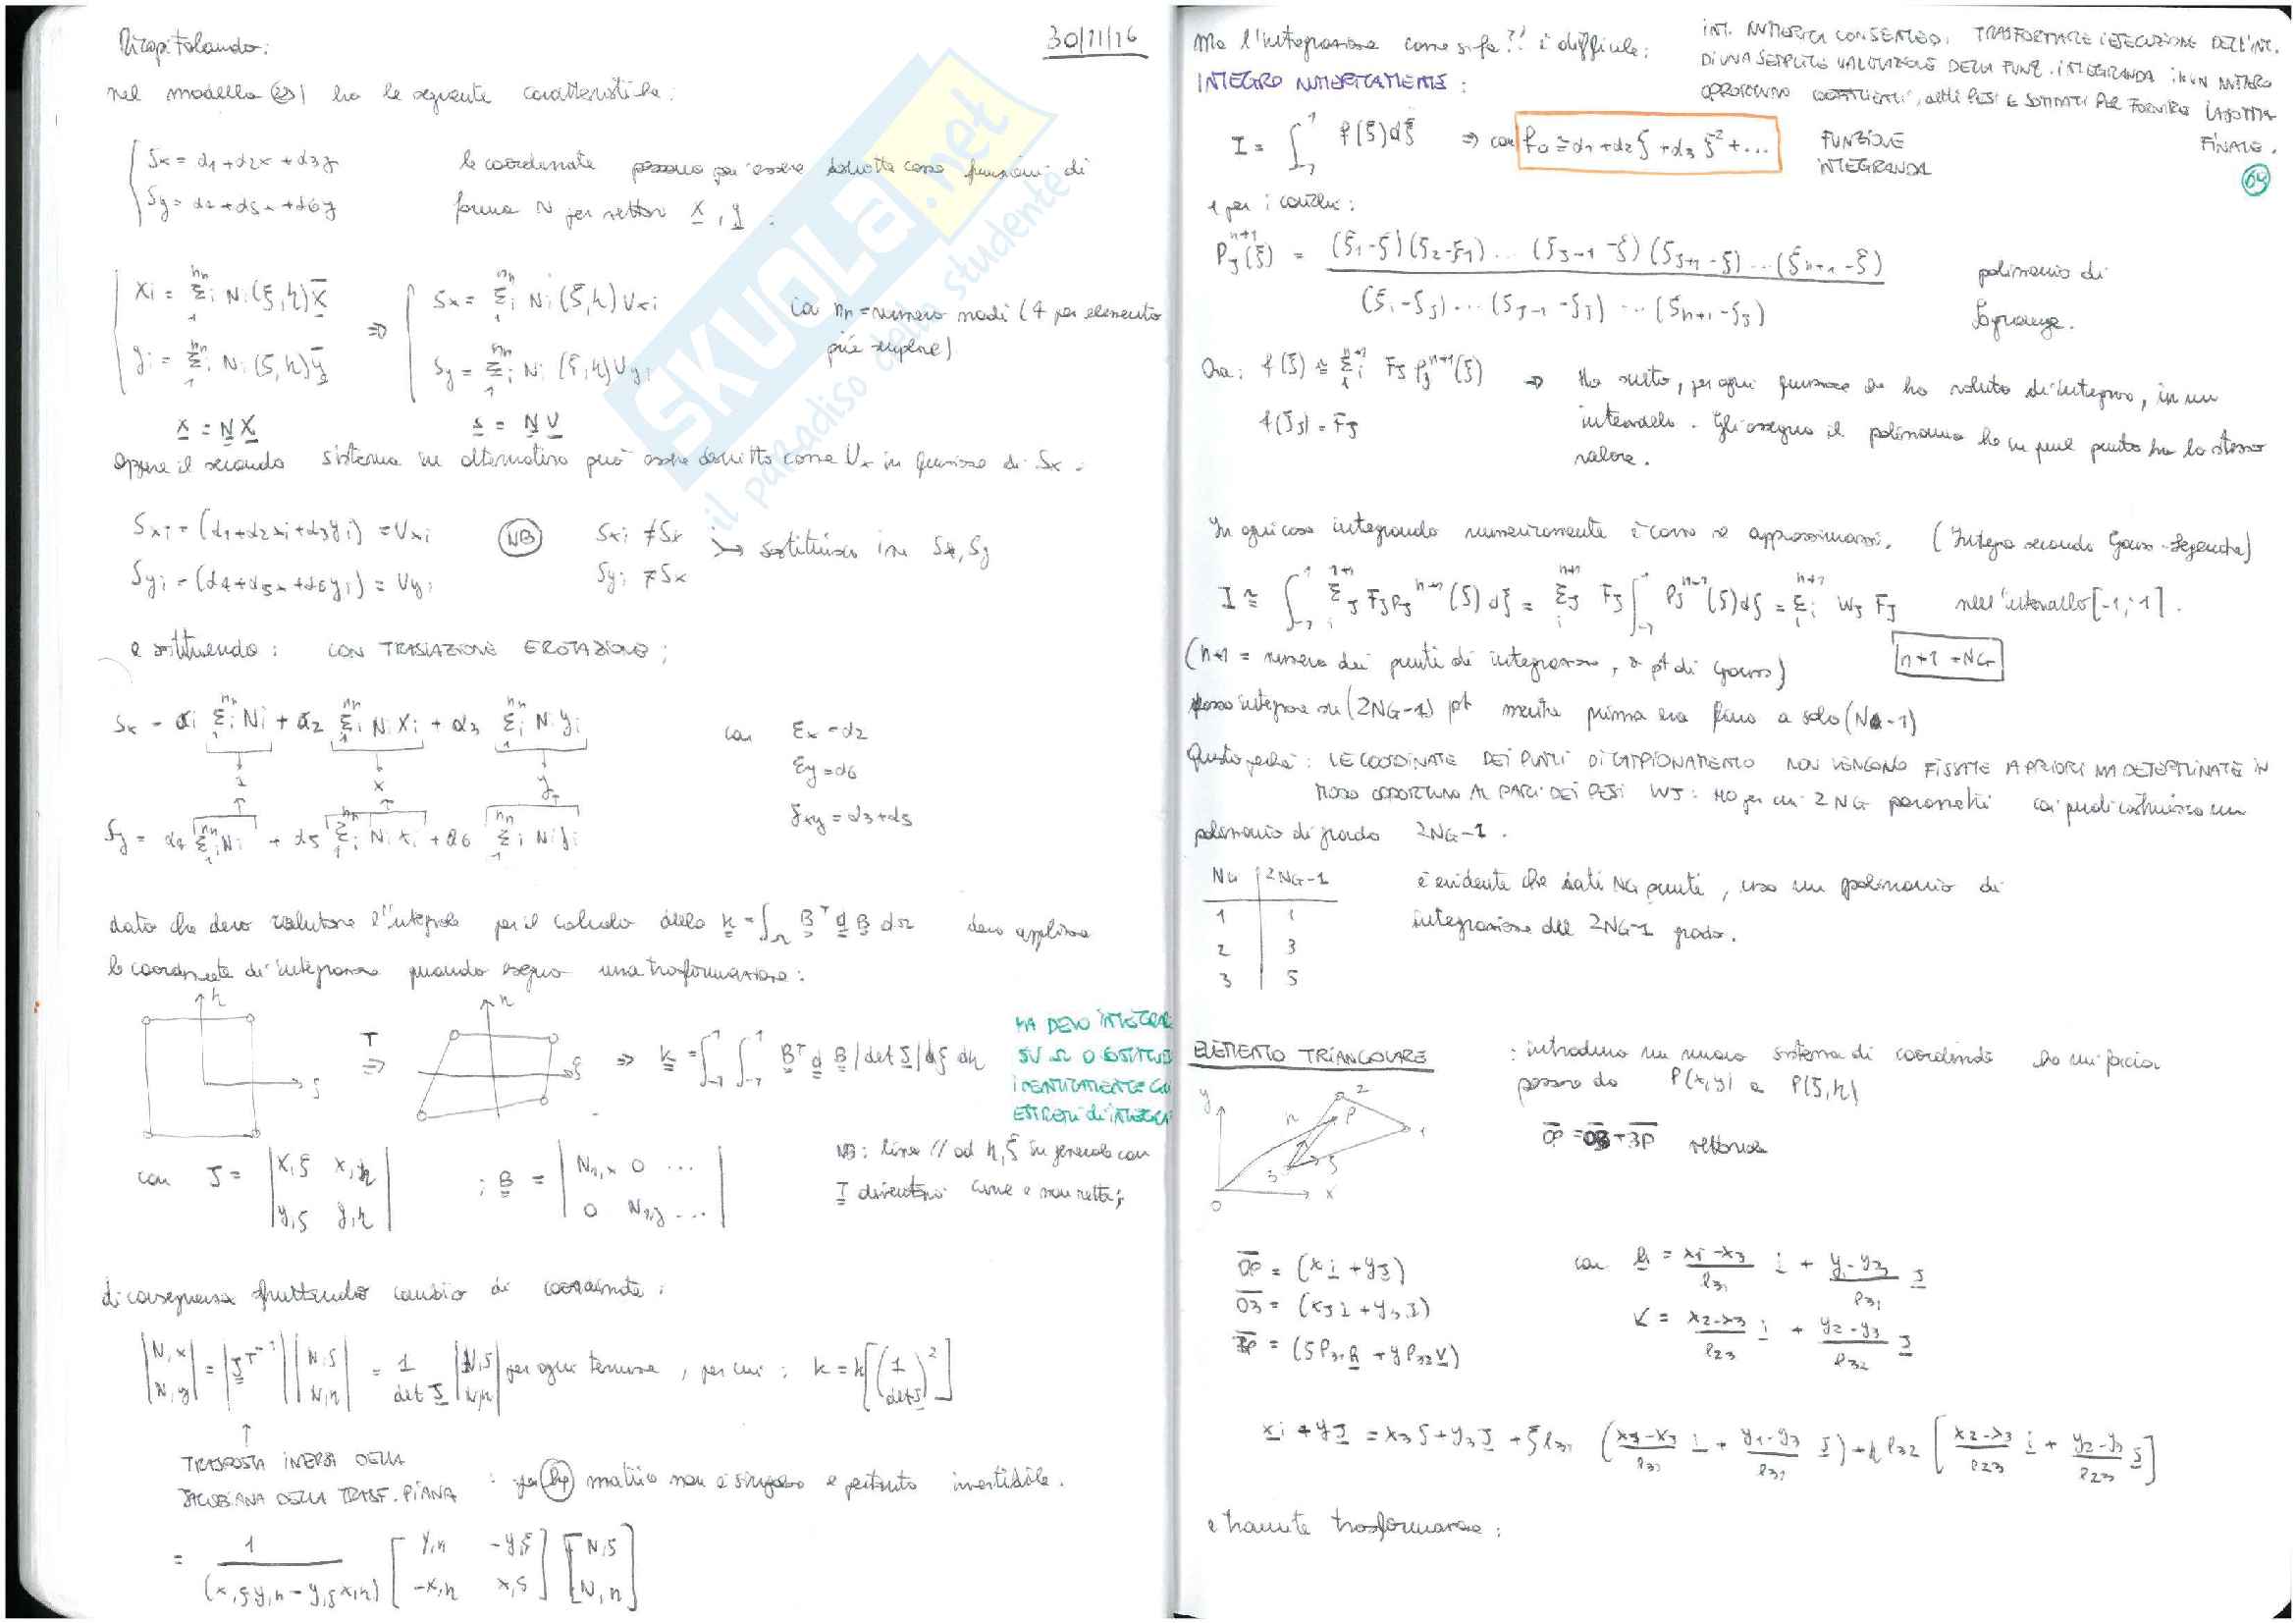 Ricapitolando:
30/11/16
nel modello ho le seguente caratteristiche:
Sx = α1+α2x+α3y
Sy = α4+α5x+α6y
le coordinate possono poi essere descritte come funzioni di
forma N per vettori X, y :
xi = Σi Ni(ξ,η) X̄
yi = Σi Ni(ξ,η) ȳ
⇒
Sx = Σi Ni(ξ,η) Vxi
Sy = Σi Ni(ξ,η) Vyi
con nn = numero nodi (4 per elemento
più semplice)
x = N X
s = N V
oppure il secondo sistema in alternativa può essere descritto come Vx in funzione di Sx.
Sxi = (α1+α2xi+α3yi) = Vxi
Syi = (α4+α5x+α6yi) = Vyi
NB
Sxi ≠ Sx
Syi ≠ Sx
sostituisco in Sx, Sy
e sostituendo: CON TRASLAZIONE E ROTAZIONE;
Sx = αi Σi Ni + α2 Σi Ni Xi + α3 Σi Ni yi
1 x y
Sy = α4 Σi Ni + α5 Σi Ni xi + α6 Σi Ni yi
con εx = α2
εy = α6
γxy = α3+α5
dato che devo valutare l'integrale per il calcolo della k = ∫Ω B^T d B dΩ devo applicare
le coordinate di integrazione quando eseguo una trasformazione:
η ξ
T ⇒
η ξ
⇒ k = ∫-1^1 ∫-1^1 B^T d B |det J| dξ dη
MA DEVO INTEGRARE
SU Ω O SOSTITUIS
IDENTICAMENTE GLI
ESTREMI di INTEGRA
con J = | x,ξ x,η |
| y,ξ y,η |
; B = | N1,x 0 ... |
| 0 N1,y ... |
NB: linee // ad η,ξ in generale con
T diventano curve e non rette;
di conseguenza sfruttando cambio di coordinate:
|N,x| = |J^T^-1| |N,ξ| = 1/det J |N,ξ| per ogni termine, per cui: k = k[(1/det J)^2]
|N,y| |N,η| |N,η|
↑
TRASPOSTA INVERSA DELLA
JACOBIANA DELLA TRASF. PIANA : per hp matrice non è singolare e pertanto invertibile.
= 1/(x,ξ y,η - y,ξ x,η) [ y,η -y,ξ ] [ N,ξ ]
[ -x,η x,ξ ] [ N,η ]
Ma l'integrazione come si fa?! è difficile:
INTEGRO NUMERICAMENTE :
INT. NUMERICA CONSENTE DI TRASFORMARE L'ESECUZIONE DELL'INT.
DI UNA SEMPLICE VALUTAZIONE DELLA FUNZ. INTEGRANDA IN UN NUMERO
OPPORTUNO COEFFICIENTI, DETTI PESI E SOMMATI PER FORNIRE LA SOMMA
FINALE.
I = ∫-1^1 f(ξ)dξ ⇒ con f0 ≅ α1+α2ξ+α3ξ²+...
FUNZIONE
INTEGRANDA
64
e per i coeff:
Pj^n+1(ξ) = (ξ1-ξ)(ξ2-ξ1)...(ξj-1-ξ)(ξj+1-ξ)...(ξn+1-ξ)
(ξi-ξj)...(ξj-1-ξj)...(ξn+1-ξj)
polinomio di
Lagrange.
Ora: f(ξ) ≅ Σi^n+1 Fj Pj^n+1(ξ) ⇒ Ho scritto, per ogni funzione che ho voluto di integrare, in un
f(ξj) = Fj
intervallo. Gli assegno il polinomio che in quel punto ha lo stesso
valore.
In ogni caso integrando numericamente è come se approssimassi. (Integro secondo Gauss-Legendre)
I ≅ ∫-1^1 Σj^n+1 Fj Pj^n+1(ξ) dξ = Σj^n+1 Fj ∫-1^1 Pj^n+1(ξ)dξ = Σi^n+1 Wj Fj nell'intervallo [-1;1].
(n+1 = numero dei punti di integrazione, o pt di Gauss)
n+1 = NG
posso integrare su (2NG-1) pt mentre prima era fino a solo (NG-1)
Questo perché: LE COORDINATE DEI PUNTI DI CAMPIONAMENTO NON VENGONO FISSATE A PRIORI MA DETERMINATE IN
MODO OPPORTUNO AL PARI DEI PESI WJ: HO per cui 2NG parametri con cui costruisco un
polinomio di grado 2NG-1.
NG 2NG-1
1 1
2 3
3 5
è evidente che dati NG punti, uso un polinomio di
integrazione del 2NG-1 grado.
ELEMENTO TRIANGOLARE
: introduco un nuovo sistema di coordinate che mi faccia
passare da P(x,y) a P(ξ,η)
y 2 η P 1 3 ξ x O
OP = O3+3P vettoriale
OP = (x i + y j)
O3 = (x3 i + y3 j)
3P = (ξ l31 h + y l32 v)
con h = x1-x3/l31 i + y1-y3/l31 j
v = x2-x3/l23 i + y2-y3/l32 j
xi + yj = x3 ξ + y3 j + ξ l31 (x1-x3/l31 i + y1-y3/l31 j) + η l32 [x2-x3/l23 i + y2-y3/l23 j]
e tramite trasformazione:
SKUOLA.net
il paradiso dello studente